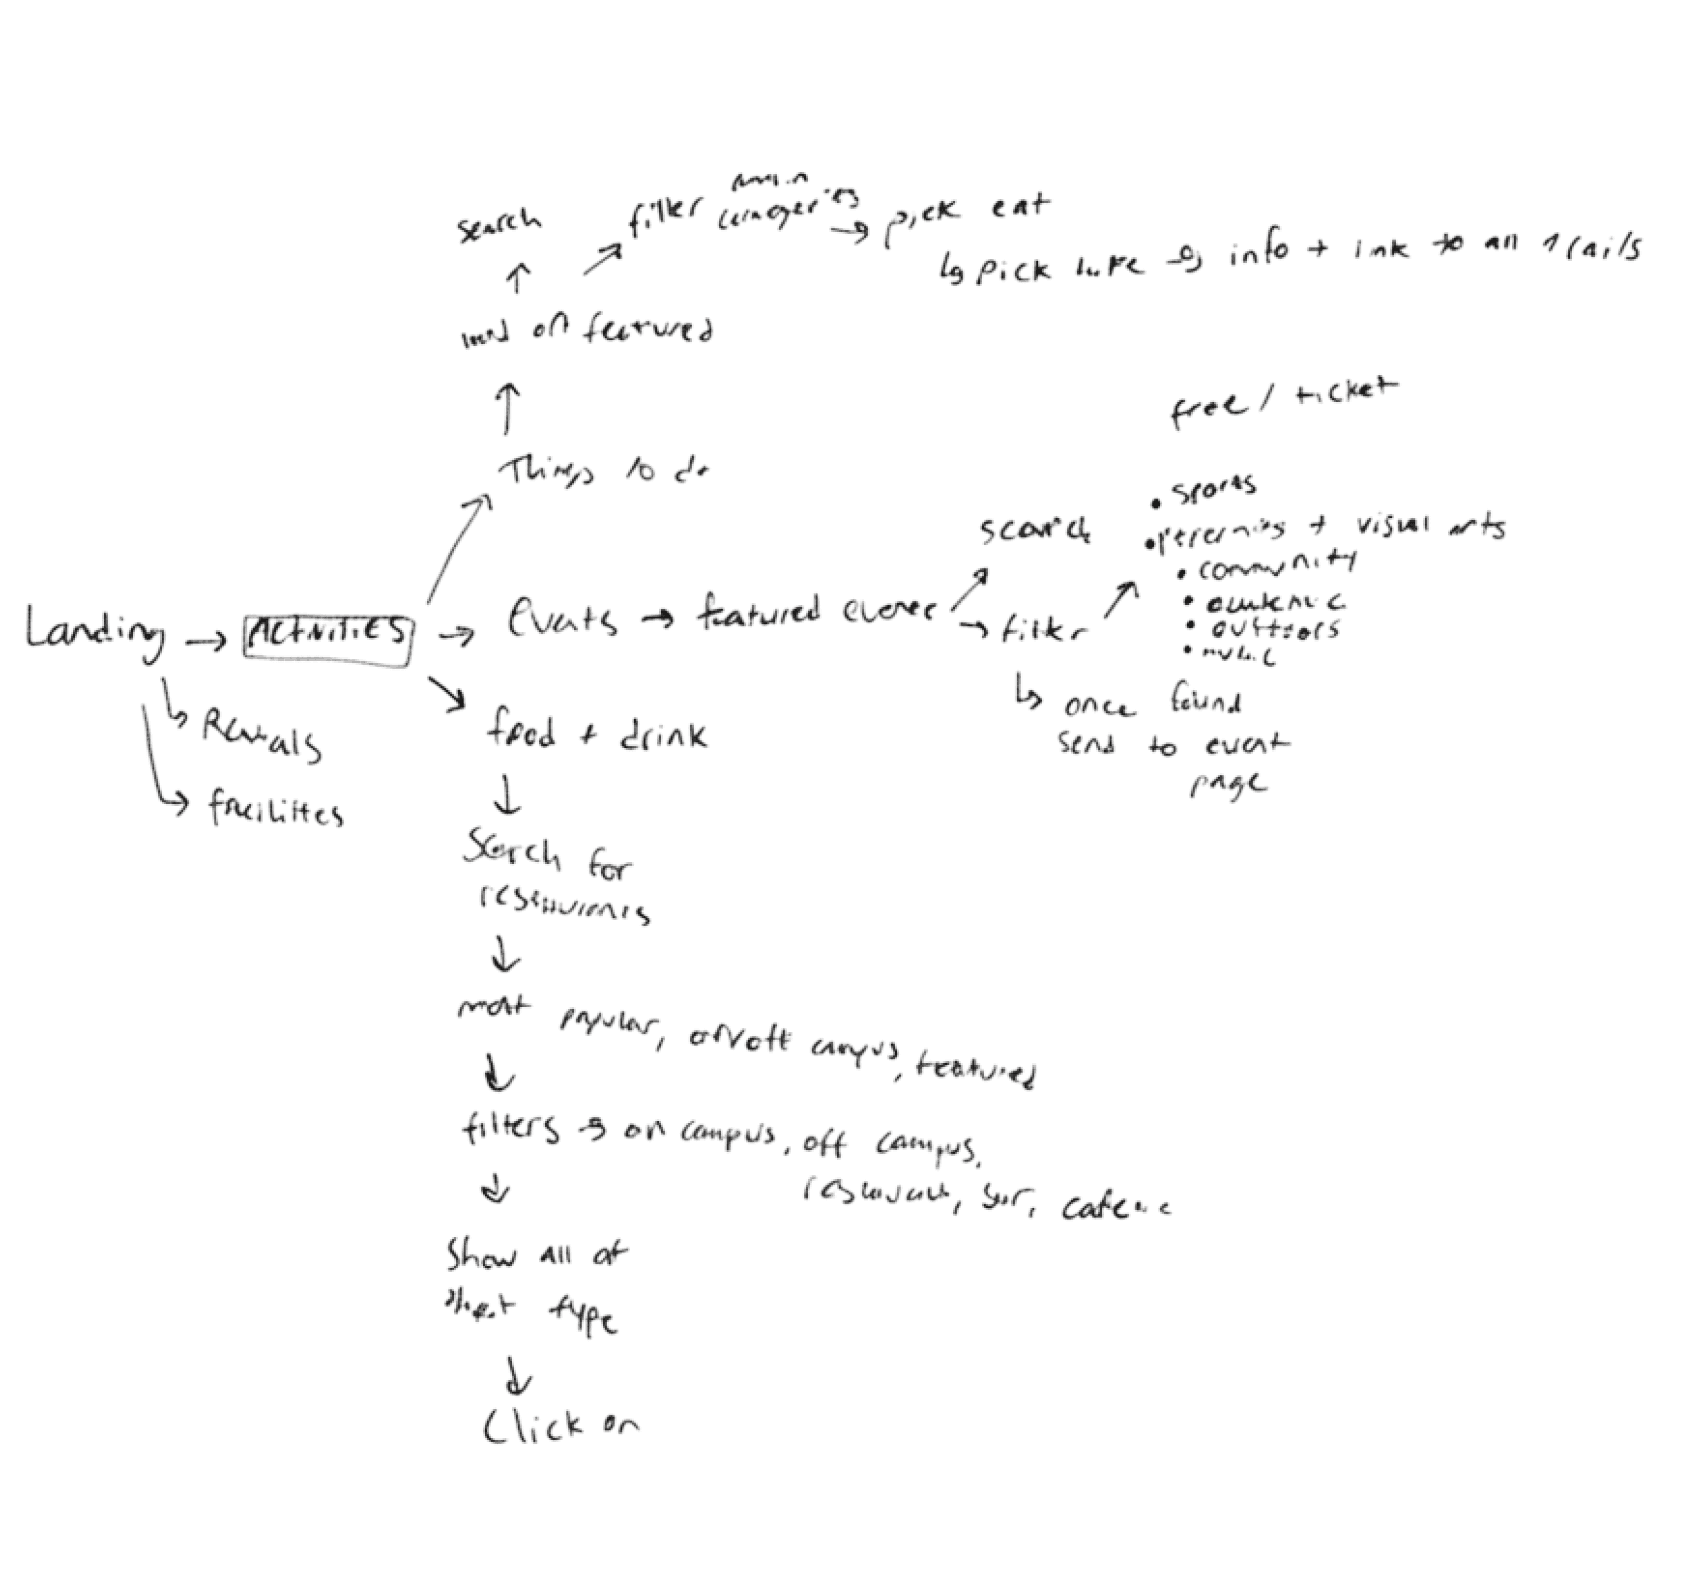 search
filter main categories
→ pick cat
↳ pick hike → info + link to all trails
↑ ↗
land on featured
↑
Things to do
free / ticket
• sports
• + visual arts
• community
• academic
• outdoors
• music
search
Landing → ACTIVITIES → Events → featured events
→ filter
↳ once found
send to event
page
↳ Rentals
↳ facilities
food + drink
↓
Search for
restaurants
↓
most popular, on/off campus, featured
↓
filters → on campus, off campus,
restaurant, bar, cafe
↓
Show all of
that type
↓
Click on